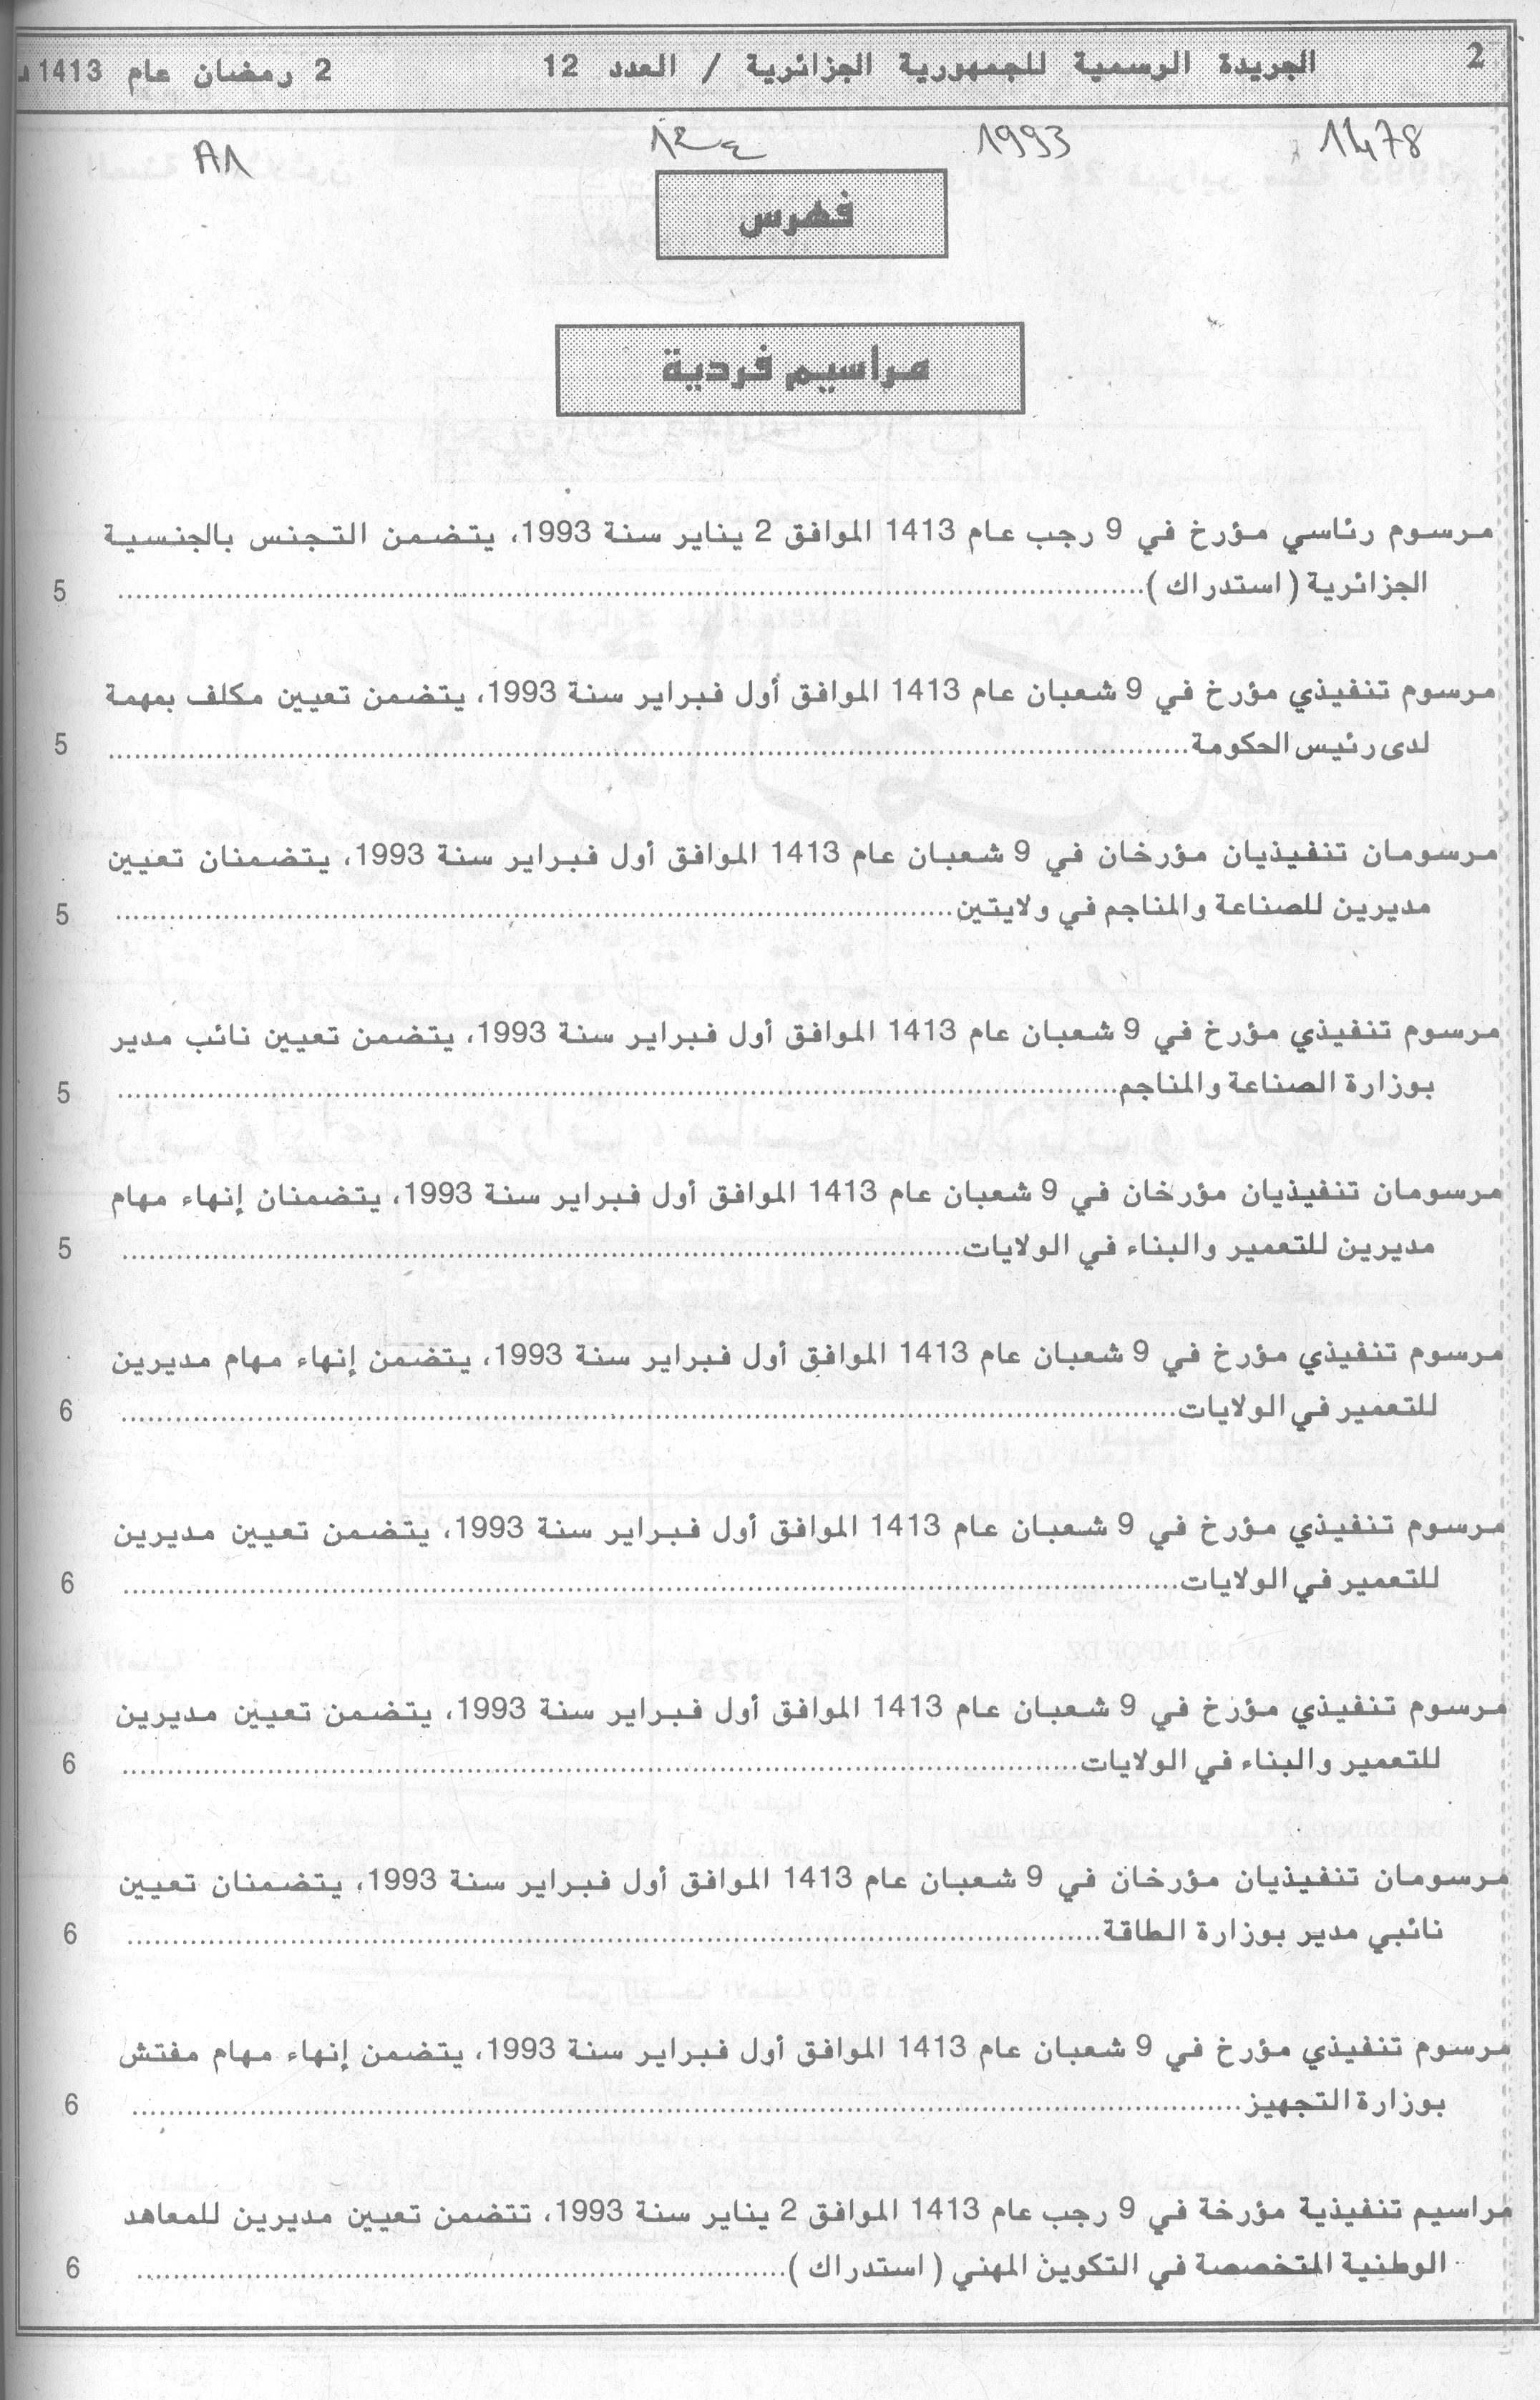 2
الجريدة الرسمية للجمهورية الجزائرية / العدد 12
2 رمضان عام 1413 هـ
1478
1993
A1
فهرس
مراسيم فردية
مرسوم رئاسي مؤرخ في 9 رجب عام 1413 الموافق 2 يناير سنة 1993، يتضمن التجنس بالجنسية
الجزائرية ( استدراك )........ 5
مرسوم تنفيذي مؤرخ في 9 شعبان عام 1413 الموافق أول فبراير سنة 1993، يتضمن تعيين مكلف بمهمة
لدى رئيس الحكومة........ 5
مرسومان تنفيذيان مؤرخان في 9 شعبان عام 1413 الموافق أول فبراير سنة 1993، يتضمنان تعيين
مديرين للصناعة والمناجم في ولايتين........ 5
مرسوم تنفيذي مؤرخ في 9 شعبان عام 1413 الموافق أول فبراير سنة 1993، يتضمن تعيين نائب مدير
بوزارة الصناعة والمناجم........ 5
مرسومان تنفيذيان مؤرخان في 9 شعبان عام 1413 الموافق أول فبراير سنة 1993، يتضمنان إنهاء مهام
مديرين للتعمير والبناء في الولايات........ 5
مرسوم تنفيذي مؤرخ في 9 شعبان عام 1413 الموافق أول فبراير سنة 1993، يتضمن إنهاء مهام مديرين
للتعمير في الولايات........ 6
مرسوم تنفيذي مؤرخ في 9 شعبان عام 1413 الموافق أول فبراير سنة 1993، يتضمن تعيين مديرين
للتعمير في الولايات........ 6
مرسوم تنفيذي مؤرخ في 9 شعبان عام 1413 الموافق أول فبراير سنة 1993، يتضمن تعيين مديرين
للتعمير والبناء في الولايات........ 6
مرسومان تنفيذيان مؤرخان في 9 شعبان عام 1413 الموافق أول فبراير سنة 1993، يتضمنان تعيين
نائبي مدير بوزارة الطاقة........ 6
مرسوم تنفيذي مؤرخ في 9 شعبان عام 1413 الموافق أول فبراير سنة 1993، يتضمن إنهاء مهام مفتش
بوزارة التجهيز........ 6
مراسيم تنفيذية مؤرخة في 9 رجب عام 1413 الموافق 2 يناير سنة 1993، تتضمن تعيين مديرين للمعاهد
الوطنية المتخصصة في التكوين المهني ( استدراك )........ 6